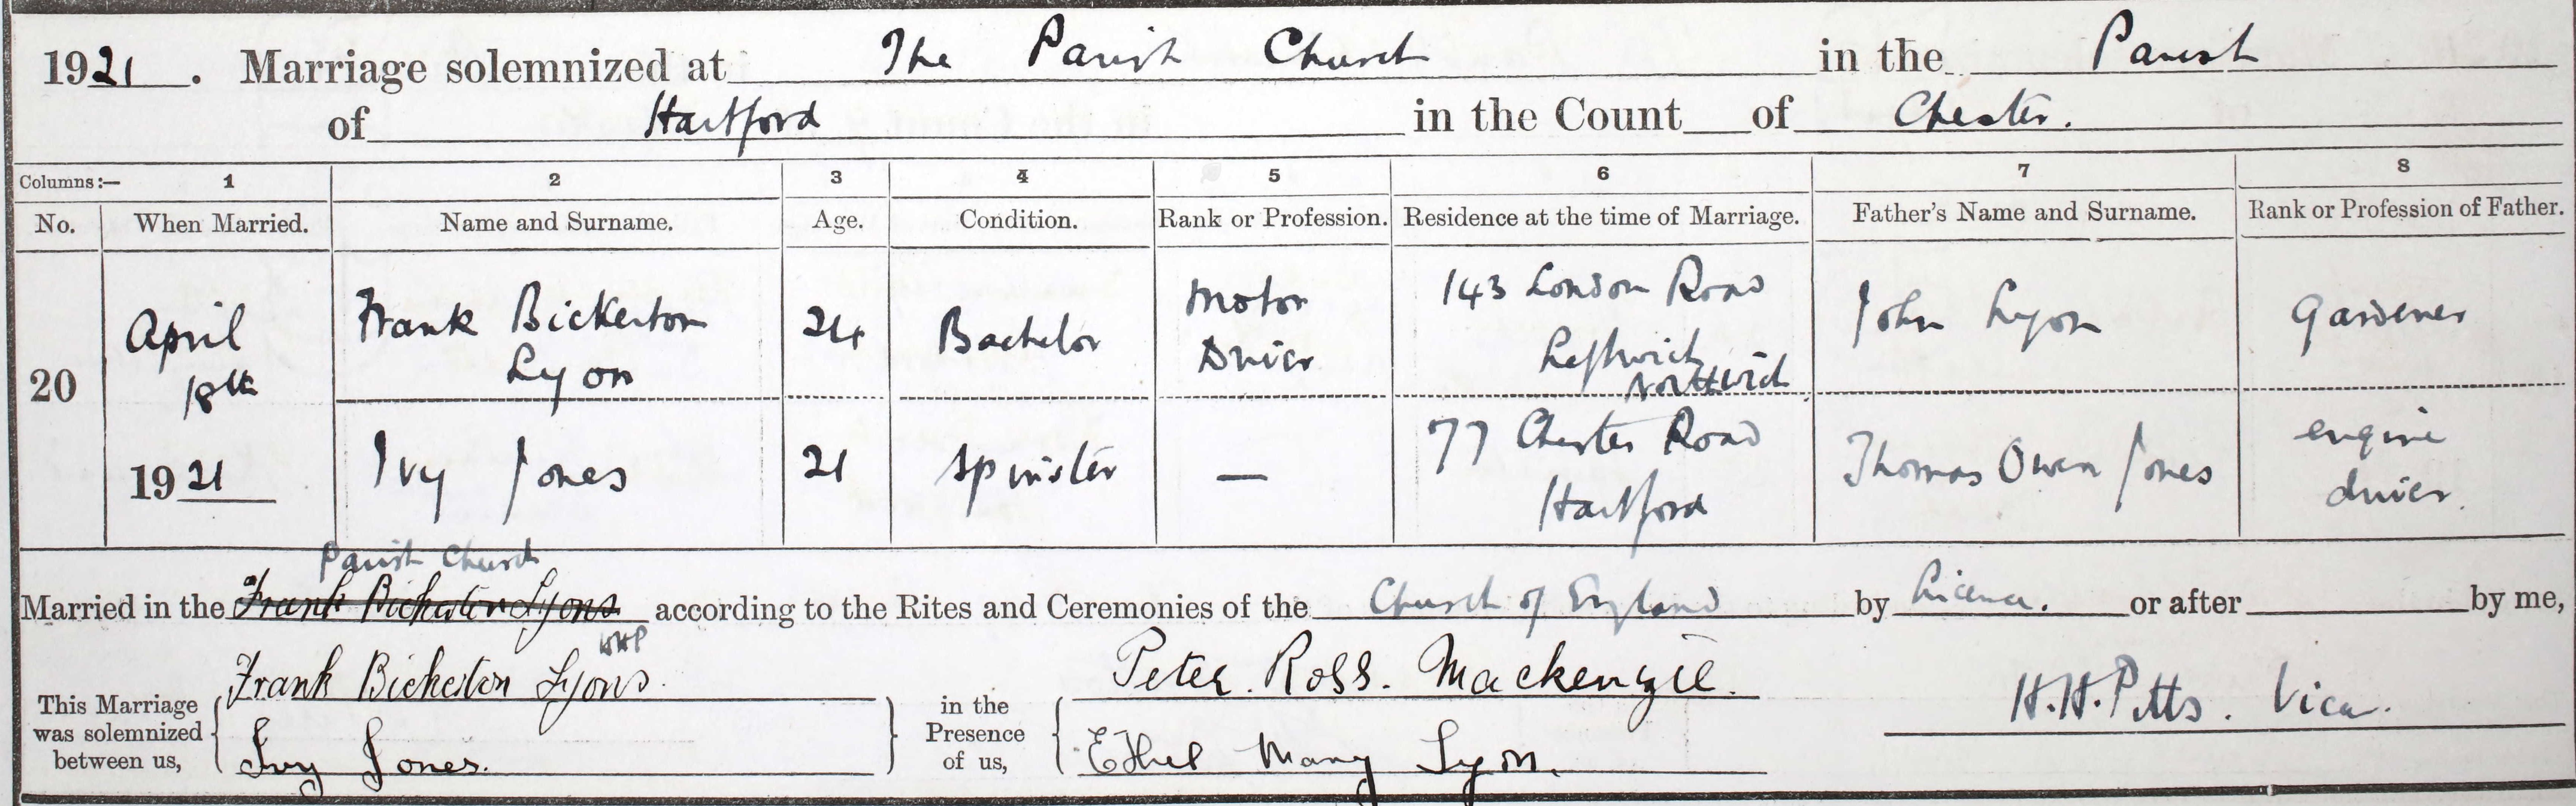 1921. Marriage solemnized at The Parish Church in the Parish
of Hartford in the Count of Chester.
Columns:— 1 2 3 4 5 6 7 8
No. When Married. Name and Surname. Age. Condition. Rank or Profession. Residence at the time of Marriage. Father's Name and Surname. Rank or Profession of Father.
20
April
18th
1921
Frank Bickerton
Lyon
24
Bachelor
Motor
Driver
143 London Road
Leftwich
Northwich
John Lyon
Gardener
Ivy Jones
21
Spinster
—
77 Chester Road
Hartford
Thomas Owen Jones
engine
driver.
Parish Church
Married in the Frank Bickerton Lyons according to the Rites and Ceremonies of the Church of England by Licence. or after by me,
HHP
This Marriage was solemnized between us,
Frank Bickerton Lyons.
Ivy Jones.
in the Presence of us,
Peter. Ross. Mackenzie.
Ethel Mary Lyon.
H.H. Pitts. Vicar.